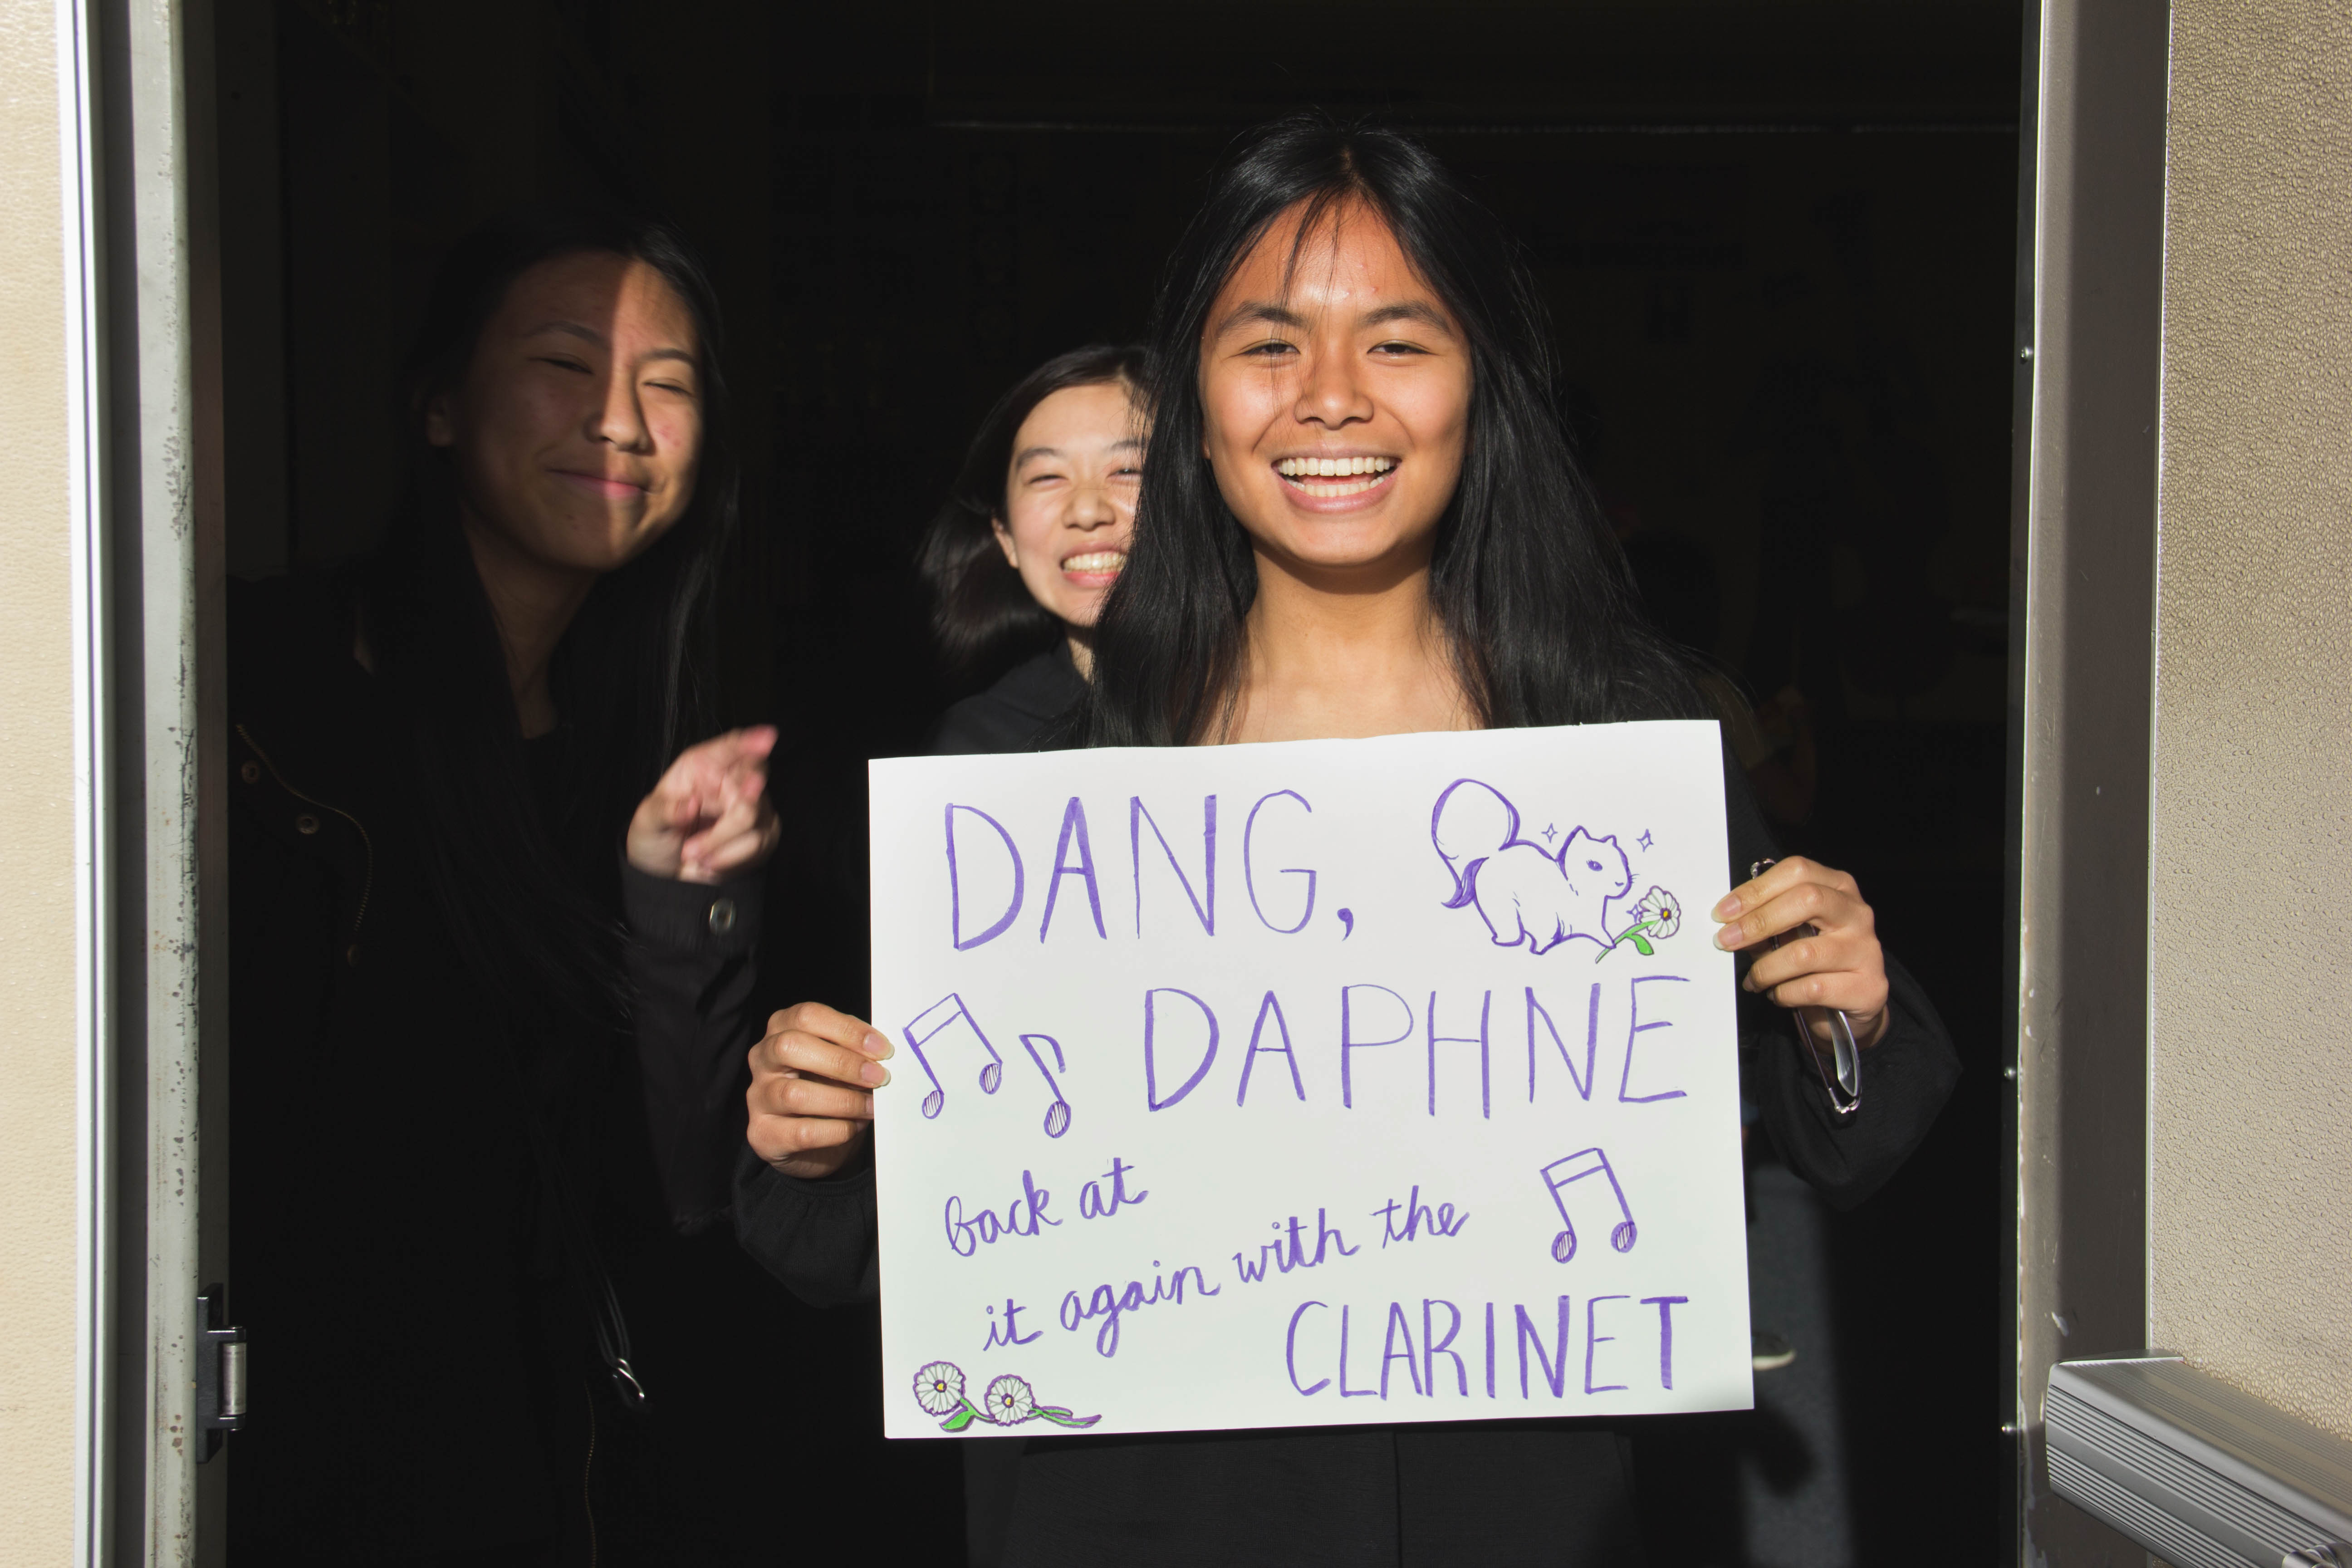 DANG,
DAPHNE
back at
it again with the
CLARINET